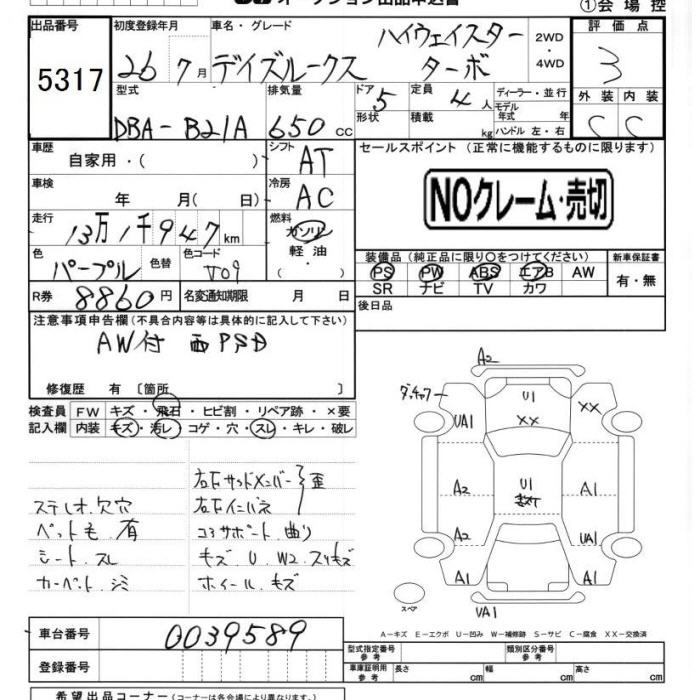 オークション出品申込書
①会場控
出品番号
5317
初度登録年月
26年7月
車名・グレード
ハイウェイスター
デイズルークス ターボ
2WD
・
4WD
評価点
3
型式
DBA-B21A
排気量
650cc
ドア
5
形状
定員
4人
積載
kg
ディーラー・並行
モデル
年式 年
ハンドル 左・右
外装 内装
C C
車歴
自家用・( )
シフト
AT
セールスポイント (正常に機能するものに限ります)
NOクレーム・売切
車検
年 月( 日)
冷房
AC
走行
13万1千947km
燃料
ガソリン
軽・油
色
パープル
色替
色コード
V09
装備品(純正品に限り○をつけてください)
PS PW ABS エアB AW
SR ナビ TV カワ
新車保証書
有・無
R券
8860円
名変通知期限 月 日
後日品
注意事項申告欄(不具合内容等は具体的に記入して下さい)
AW付 両PSD
修復歴 有〔箇所 〕
検査員
記入欄
FW キズ・飛石・ヒビ割・リペア跡・×要
内装 キズ・汚レ・コゲ・穴・スレ・キレ・破レ
右左サイドメンバー 歪
ステレオ.欠穴 右左インパネ
ペット毛.有 コアサポート.曲り
シート.スレ キズ.U.W2.スリキズ
カーペット.シミ ホイール.キズ
A2
ダッチャク
U1
XX
XX
UA1
A2
U1
A1
A2
UA1
A1
A1
スペア
VA1
A−キズ E−エクボ U−凹み W−補修跡 S−サビ C−腐食 XX−交換済
車台番号
0039589
登録番号
型式指定番号
参考
類別区分番号
参考
車庫証明用
参考
長さ cm 幅 cm 高さ cm
希望出品コーナー(コーナーは各会場により異なります。)